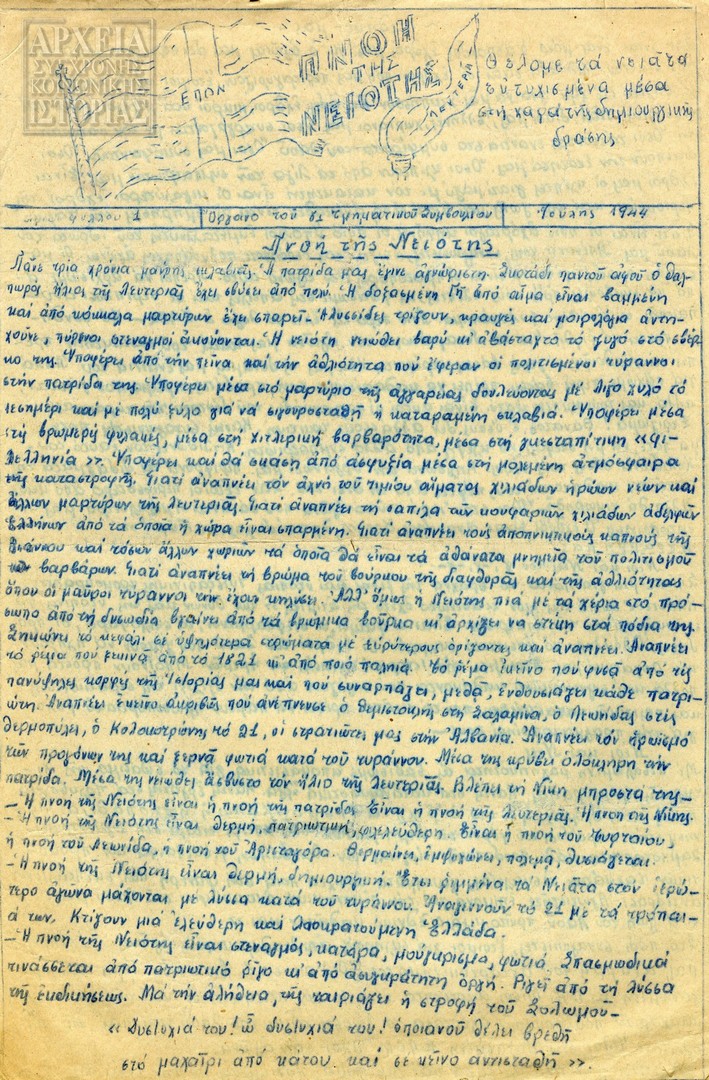 ΑΡΧΕΙΑ
ΣΥΓΧΡΟΝΗΣ
ΚΟΙΝΩΝΙΚΗΣ
ΙΣΤΟΡΙΑΣ
ΕΠΟΝ
ΠΝΟΗ
ΤΗΣ
ΝΕΙΟΤΗΣ
ΛΕΥΤΕΡΙΑ
Θέλομε τά νειάτα
εὐτυχισμένα μέσα
στή χαρά τῆς δημιουργικῆς
δράσης
φύλλου 1
Ὄργανο τοῦ Τμηματικοῦ Συμβουλίου
Ἰούλης 1944
Πνοή τῆς Νειότης
Πᾶνε τρία χρόνια μαύρης σκλαβιᾶς. Ἡ πατρίδα μας ἔγινε ἀγνώριστη. Σκοτάδι παντοῦ ἀφοῦ ὁ θαλ-
πωρός ἥλιος τῆς Λευτεριᾶς ἔχει σβύσει ἀπό πολύ. Ἡ δοξασμένη Γῆ ἀπό αἷμα εἶναι βαμμένη
καί ἀπό κόκκαλα μαρτύρων ἔχει σπαρεῖ. Ἁλυσσίδες τρίζουν, κραυγές καί μοιρολόγια ἀντη-
χοῦνε, πύρινοι στεναγμοί ἀκούονται. Ἡ νειότη νειώθει βαρύ κι ἀβάσταχτο τό ζυγό στό σβέρ-
κο της. Ὑποφέρει ἀπό τήν πεῖνα καί τήν ἀθλιότητα πού ἔφεραν οἱ πολιτισμένοι τύραννοι
στήν πατρίδα της. Ὑποφέρει μέσα στό μαρτύριο τῆς ἀγγαρείας δουλεύοντας μέ λίγο χυλό τό
μεσημέρι καί μέ πολύ ξύλο γιά νά σιγουρευταθῆ ἡ καταραμένη σκλαβιά. Ὑποφέρει μέσα
στίς βρωμερές φυλακές, μέσα στή χιτλερική βαρβαρότητα, μέσα στή γκεσταπίτικη «φι-
λελληνία». Ὑποφέρει καί θά σκάση ἀπό ἀσφυξία μέσα στή μολεμένη ἀτμόσφαιρα
τῆς καταστροφῆς. Γιατί ἀναπνέει τόν ἀχνό τοῦ τιμίου αἵματος χιλιάδων ἡρώων νέων καί
ἄλλων μαρτύρων τῆς λευτεριᾶς. Γιατί ἀναπνέει τή σαπίλα τῶν κουφαριῶν χιλιάδων ἀδελφῶν
Ἑλλήνων ἀπό τά ὁποῖα ἡ χώρα εἶναι σπαρμένη. Γιατί ἀναπνέει τούς ἀποπνικτικούς καπνούς τῆς
Βιάννου καί τόσων ἄλλων χωριῶν τά ὁποῖα θά εἶναι τά ἀθάνατα μνημεῖα τοῦ πολιτισμοῦ
τῶν βαρβάρων. Γιατί ἀναπνέει τή βρώμα τοῦ βούρκου τῆς διαφθορᾶς καί τῆς ἀθλιότητας
ὅπου οἱ μαῦροι τύραννοι τήν ἔχουν κυλίσει. Ἀλλ' ὅμως ἡ Νειότης πιά μέ τά χέρια στό πρό-
σωπο ἀπό τή δυσωδία βγαίνει ἀπό τά βρώμικα βοῦρκα κι ἀρχίζει νά στέκη στά πόδια της.
Σηκώνει τό κεφάλι σέ ὑψηλότερα στρώματα μέ εὐρύτερους ὁρίζοντες καί ἀναπνέει. Ἀναπνέει
τό ρέμα πού ξεκινᾶ ἀπό τό 1821 κι ἀπό ποιό παληά. Τό ρέμα ἐκεῖνο πού φυσᾶ ἀπό τίς
πανύψηλες κορφές τῆς Ἱστορίας μας καί πού συναρπάζει, μεθᾶ, ἐνθουσιάζει κάθε πατρι-
ώτη. Ἀναπνέει ἐκεῖνο ἀκριβῶς πού ἀνέπνευσε ὁ Θεμιστοκλῆς στή Σαλαμῖνα, ὁ Λεωνίδας στίς
Θερμοπύλες, ὁ Κολοκοτρώνης τό 21, οἱ στρατιώτες μας στήν Ἀλβανία. Ἀναπνέει τόν ἡρωϊσμό
τῶν προγόνων της καί ξερνᾶ φωτιά κατά τοῦ τυράννου. Μέσα της κρύβει ὁλόκληρη τήν
πατρίδα. Μέσα της νειώθει ἄσβυστο τόν ἥλιο τῆς λευτεριᾶς. Βλέπει τή Νίκη μπροστά της—
— Ἡ πνοή τῆς Νειότης εἶναι ἡ πνοή τῆς πατρίδος. Εἶναι ἡ πνοή τῆς λευτεριᾶς. Ἡ πνοή τῆς Νίκης.
— Ἡ πνοή τῆς Νειότης εἶναι θερμή, πατριωτική, φιλελεύθερη. Εἶναι ἡ πνοή τοῦ Τυρταίου,
ἡ πνοή τοῦ Λεωνίδα, ἡ πνοή τοῦ Ἀρισταγόρα. Θερμαίνει, ἐμψυχώνει, πολεμᾶ, θυσιάζεται.
— Ἡ πνοή τῆς Νειότης εἶναι θερμή, δημιουργική. Ἔτσι ριμμένα τά Νειᾶτα στόν ἱερώ-
τερο ἀγῶνα μάχονται μέ λύσσα κατά τοῦ τυράννου. Ἀναγεννοῦν τό 21 μέ τά τρόπαι-
ά των. Κτίζουν μιά ἐλεύθερη καί λαοκρατούμενη Ἑλλάδα.
— Ἡ πνοή τῆς Νειότης εἶναι στεναγμός, κατάρα, μούγκρισμα, φωτιά. Σπασμωδικά
τινάσσεται ἀπό πατριωτικό ρῖγο κι ἀπό ἀσυγκράτητη ὀργή. Ριγεῖ ἀπό τή λύσσα
τῆς ἐκδικήσεως. Μά τήν ἀλήθεια, τῆς ταιριάζει ἡ στροφή τοῦ Σολωμοῦ—
« Δυστυχιά του! ὦ δυστυχιά του! ὁποιανοῦ θέλει βρεθῆ
στό μαχαῖρι ἀπό κάτου καί σέ κεῖνο ἀντισταθῆ ».